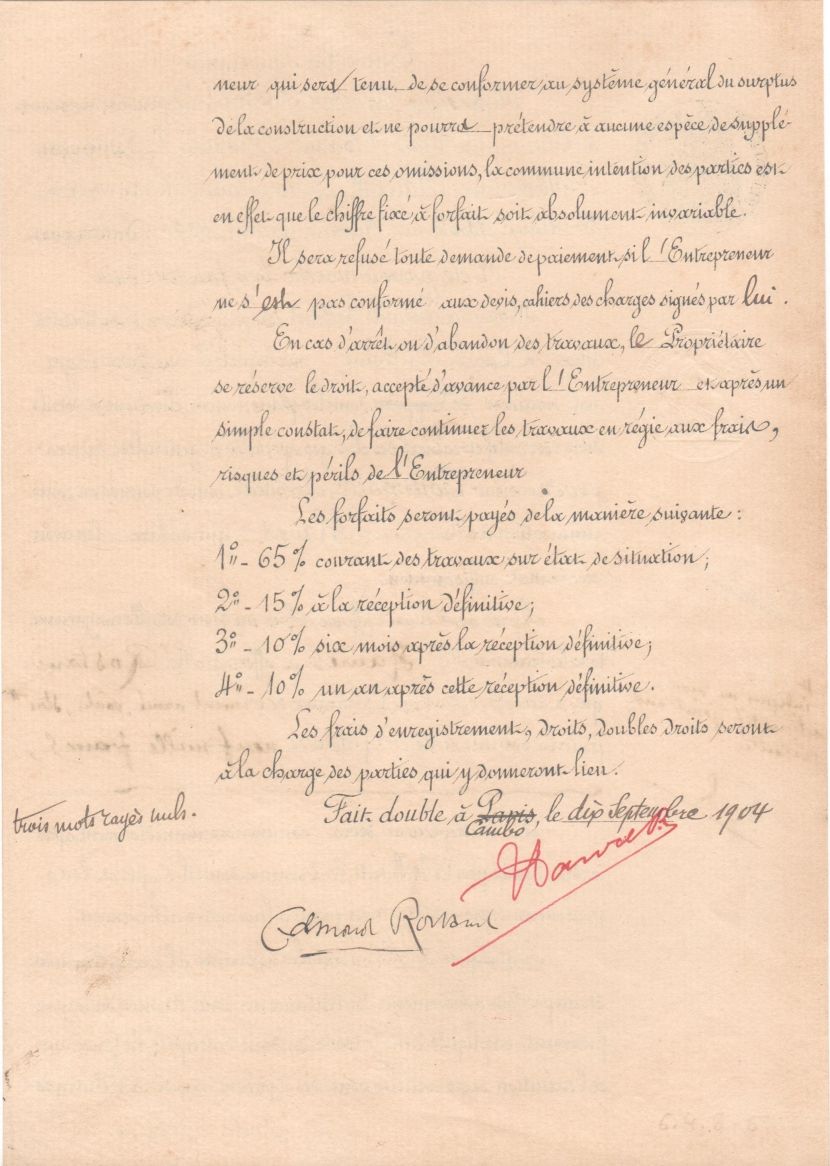 neur qui sera tenu de se conformer au système général du surplus
de la construction et ne pourra prétendre à aucune espèce de supplé-
ment de prix pour ces omissions, la commune intention des parties est
en effet que le chiffre fixé à forfait soit absolument invariable.
Il sera refusé toute demande de paiement si l'Entrepreneur
ne s'est pas conformé aux devis, cahiers des charges signés par lui.
En cas d'arrêt ou d'abandon des travaux, le Propriétaire
se réserve le droit, accepté d'avance par l'Entrepreneur et après un
simple constat, de faire continuer les travaux en régie aux frais,
risques et périls de l'Entrepreneur
Les forfaits seront payés de la manière suivante :
1º - 65 % courant des travaux sur état de situation ;
2º - 15 % à la réception définitive ;
3º - 10 % six mois après la réception définitive ;
4º - 10 % un an après cette réception définitive.
Les frais d'enregistrement, droits, doubles droits seront
à la charge des parties qui y donneront lieu.
Fait double à Paris, le dix Septembre 1904
Cambo
trois mots rayés nuls.
Edmond Rostand